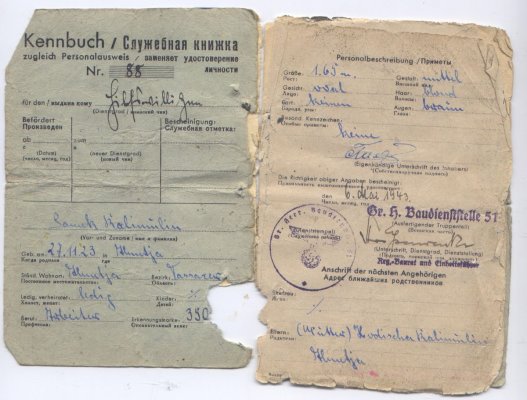 Kennbuch / Служебная книжка
zugleich Personalausweis / заменяет удостоверение
личности
Nr. 88
für den / выдана кому Hilfswilligen
(Dienstgrad / воинский чин)
Befördert
Произведен
Bescheinigung:
Служебная отметка:
ab
с
zum
в
(Datum)
(число, месяц, год)
(neuer Dienstgrad)
(новый чин)
(Vor- und Zuname / имя и фамилия)
Geb. am 27.11.23 in
Когда родился где
Ständ. Wohnort
Постоянное местожительство
Bezirk
Область:
Ledig, verheiratet: ledig
Холост, женат:
Kinder:
Дети:
Beruf: Arbeiter
Профессия:
Erkennungsmarke: 350
Опознавательный знак:
Personalbeschreibung / Приметы
Größe: 1.65 m.
Рост:
Gestalt: mittel
Gesicht: oval
Лицо:
Haar: blond
Волосы:
Bart: keinen
Борода, усы:
Augen: braun
Глаза:
Besond. Kennzeichen:
Особые приметы:
keine
(Eigenhändige Unterschrift des Inhabers)
(Собственноручная подпись)
Die Richtigkeit obiger Angaben bescheinigt:
den 6. Mai 1943
Число, месяц, год
Gr. H. Baudienststelle 51
(Ausfertigender Truppenteil)
(Dienststempel)
(Unterschrift, Dienstgrad, Dienststellung)
Reg.-Baurat und Einheitsführer
Anschrift der nächsten Angehörigen
Адрес ближайших родственников
Eltern: (Mutter)
Родители: